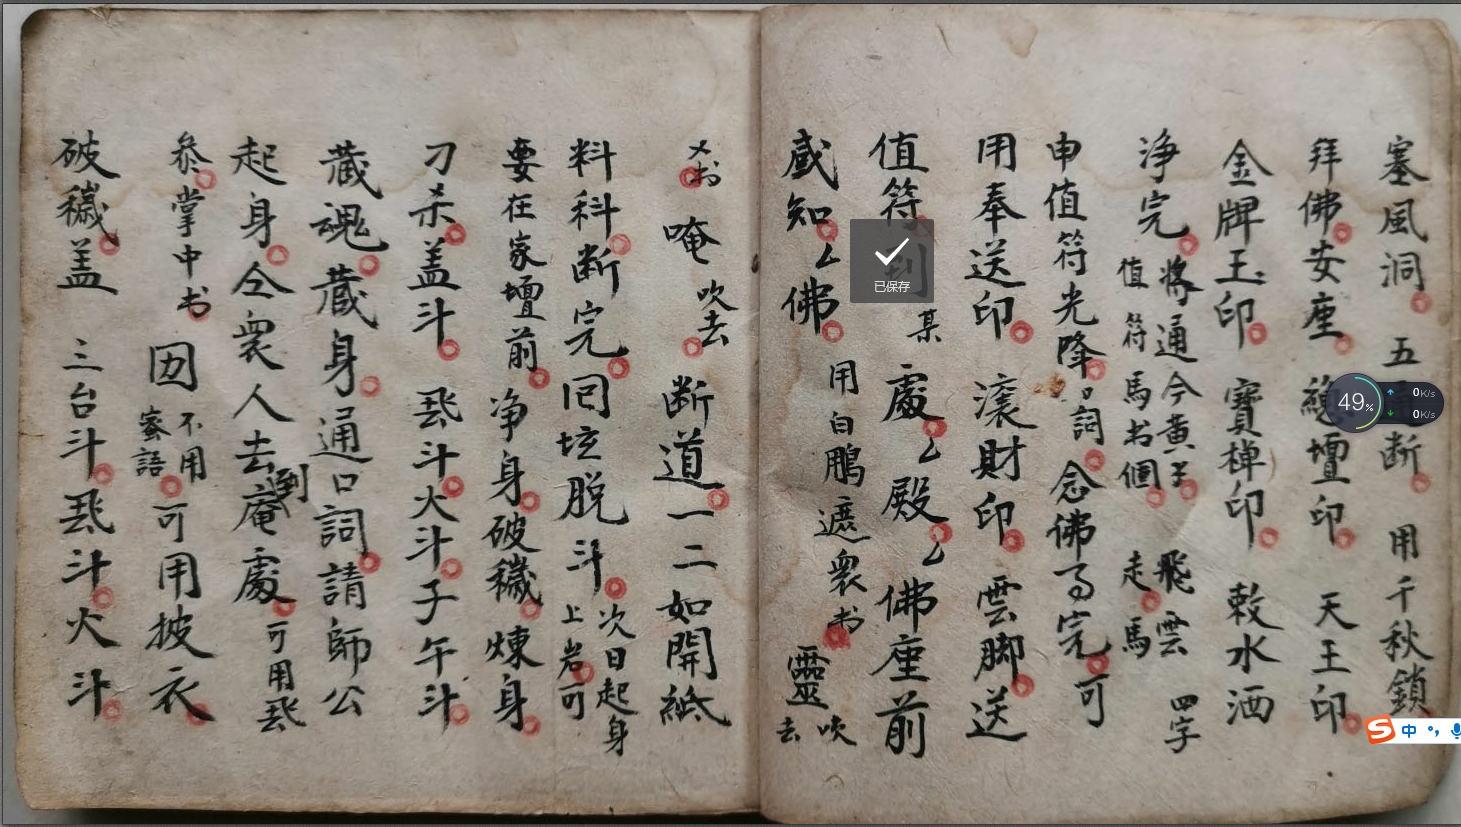 塞風洞 五 断 用千秋鎖
拜佛安座 壇印 天王印
金牌王印 寶樟印 敕水洒
净完 將通今黄 值符馬书個 飛雲走馬 四字
申值符光降 口詞 念佛 完可
用奉送印 滾財印 雲脚送
值符到 某處 殿 佛座前
感知 佛 用白鵬遮衆书 靈 吹去
书 唵 吹去 断道一二如開紙
料科断完 囘坛脱斗 次日起身上岩可
要在家壇前 净身破穢煉身
刁杀盖斗 斗火斗子午斗
藏魂藏身通口詞請師公
起身仝衆人去到庵處 可用
叅掌中书 不用蜜語 可用披衣
破穢盖 三台斗 斗火斗
已保存
49%
0K/s
0K/s
中